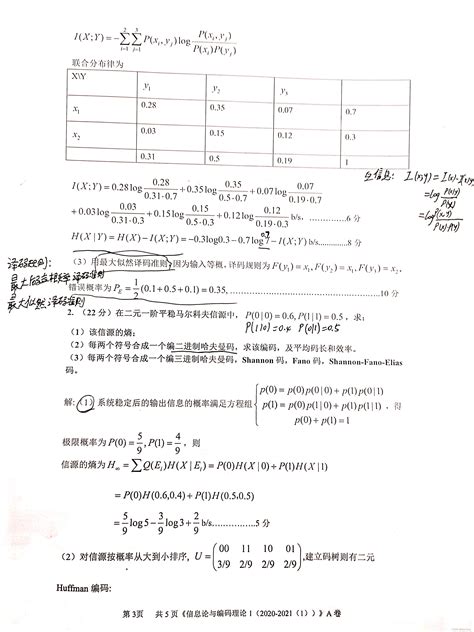 I(X;Y) = -∑_{i=1}^{2}∑_{j=1}^{3} P(x_i, y_j) log P(x_i, y_j)/(P(x_i)P(y_j))
联合分布律为
X\Y y₁ y₂ y₃
x₁ 0.28 0.35 0.07 0.7
x₂ 0.03 0.15 0.12 0.3
0.31 0.5 0.19 1
互信息: I(x;y) = I(x) - I(x|y)
I(X;Y) = 0.28log 0.28/(0.31·0.7) + 0.35log 0.35/(0.5·0.7) + 0.07log 0.07/(0.19·0.7)
= log P(x|y)/P(x)
+0.03log 0.03/(0.31·0.3) + 0.15log 0.15/(0.5·0.3) + 0.12log 0.12/(0.19·0.3) b/s. …………6 分
= log P(x,y)/P(x)·P(y)
H(X|Y) = H(X) - I(X;Y) = -0.3log0.3 - 0.7log0.7 - I(X;Y) b/s...........8 分
译码规则:
最大后验概率译码准则
最大似然译码准则
(3)用最大似然译码准则,因为输入等概。译码规则为 F(y₁) = x₁, F(y₂) = x₁, F(y₃) = x₂,
错误概率为 P_E = 1/2(0.1+0.5+0.1) = 0.35,……………………………………10 分
2.(22 分)在二元一阶平稳马尔科夫信源中,P(0|0) = 0.6, P(1|1) = 0.5,求:
P(1|0)=0.4 P(0|1)=0.5
(1)该信源的熵;
(2)每两个符号合成一个编二进制哈夫曼码,求该编码,及平均码长和效率。
(3)每两个符号合成一个编三进制哈夫曼码,Shannon 码,Fano 码,Shannon-Fano-Elias
码。
解:(1)系统稳定后的输出信息的概率满足方程组 { p(0) = p(0)p(0|0) + p(1)p(0|1)
p(1) = p(0)p(1|0) + p(1)p(1|1) ,得
p(0) + p(1) = 1
极限概率为 P(0) = 5/9, P(1) = 4/9,则
信源的熵为 H_∞ = ∑Q(E_i)H(X|E_i) = P(0)H(X|0) + P(1)H(X|1)
= P(0)H(0.6,0.4) + P(1)H(0.5,0.5)
= 5/9 log5 - 3/9 log3 + 2/9 b/s……………5 分
(2)对信源按概率从大到小排序,U = (00 11 10 01
3/9 2/9 2/9 2/9),建立码树则有二元
Huffman 编码:
第 3页 共 5 页《信息论与编码理论 1(2020-2021(1))》A 卷